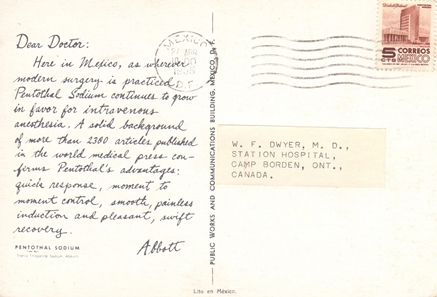 Dear Doctor:
Here in Mexico, as wherever
modern surgery is practiced,
Pentothal Sodium continues to grow
in favor for intravenous
anesthesia. A solid background
of more than 2380 articles published
in the world medical press con-
firms Pentothal's advantages:
quick response, moment to
moment control, smooth, painless
induction and pleasant, swift
recovery.
Abbott
PENTOTHAL SODIUM
PUBLIC WORKS AND COMMUNICATIONS BUILDING, MEXICO, D. F.
MEXICO
D.F.
5
CTS
CORREOS
MEXICO
W. F. DWYER, M. D.,
STATION HOSPITAL,
CAMP BORDEN, ONT.,
CANADA.
Lito en México.